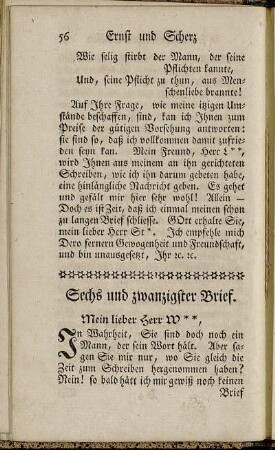 56 Ernst und Scherz
Wie selig stirbt der Mann, der seine
Pflichten kannte,
Und, seine Pflicht zu thun, aus Men-
schenliebe brannte!
Auf Ihre Frage, wie meine itzigen Um-
stånde beschaffen, sind, kan ich Ihnen zum
Preise der gütigen Vorsehung antworten:
sie sind so, daß ich vollkommen damit zufrie-
den seyn kan. Mein Freund, Herr L**,
wird Ihnen aus meinen an ihn gerichteten
Schreiben, wie ich ihn darum gebeten habe,
eine hinlängliche Nachricht geben. Es gehet
und gefält mir hier sehr wohl! Allein —
Doch es ist Zeit, daß ich einmal meinen schon
zu langen Brief schliesse. GOtt erhalte Sie,
mein lieber Herr St *. Ich empfehle mich
Dero fernern Gewogenheit und Freundschaft,
und bin unausgesetzt, Ihr ꝛc. ꝛc.
Sechs und zwanzigster Brief.
Mein lieber Herr W**,
In Wahrheit, Sie sind doch noch ein
Mann, der sein Wort hält. Aber sa-
gen Sie mir nur, wo Sie gleich die
Zeit zum Schreiben hergenommen haben?
Nein! so bald hätt ich mir gewiß noch keinen
Brief